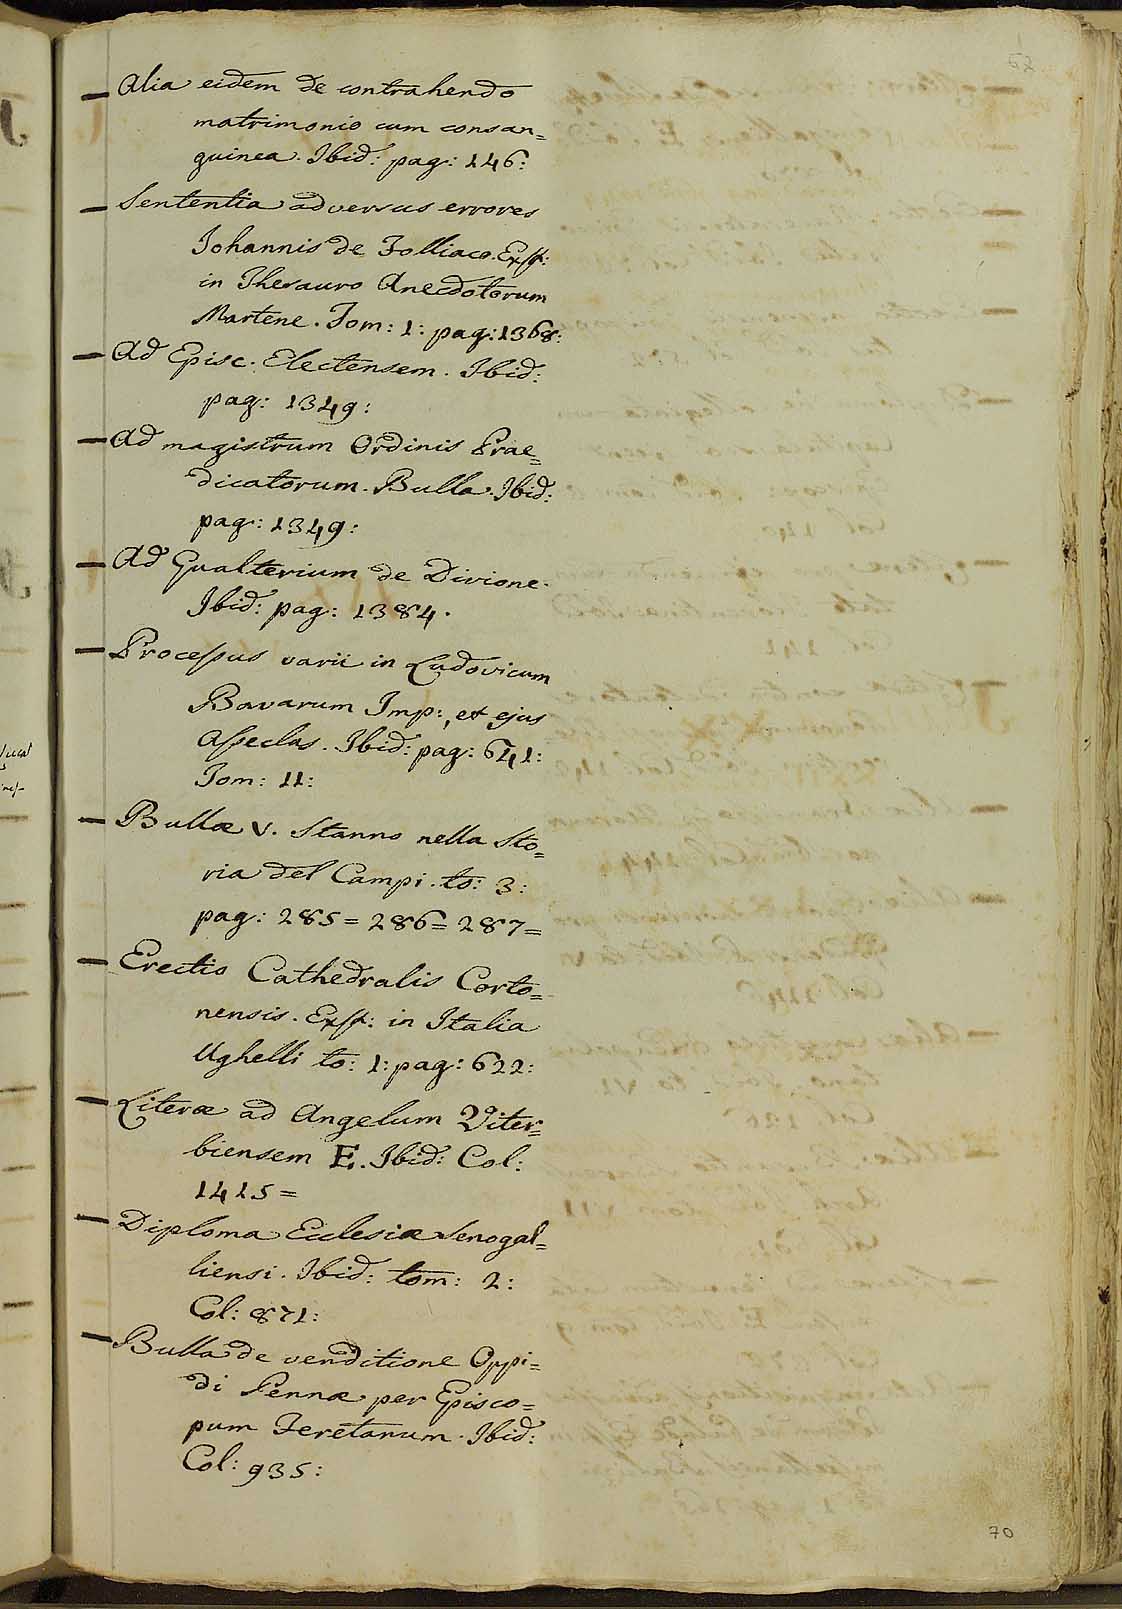 62
— Alia eidem de contrahendo
matrimonio cum consan=
guinea. Ibid: pag: 146:
— Sententia adversus errores
Johannis de Folliaco. Exst:
in Thesauro Anecdotorum
Martene. Tom: 1: pag: 1368:
— Ad Episc: Electensem. Ibid:
pag: 1349:
— Ad magistrum Ordinis Prae=
dicatorum. Bulla. Ibid:
pag: 1349:
— Ad Gualterium de Divione.
Ibid: pag: 1384.
— Processus varii in Ludovicum
Bavarum Imp:, et ejus
asseclas. Ibid: pag: 641:
Tom: 11:
— Bullæ V. Stanno nella Sto=
ria del Campi. to: 3:
pag: 285= 286= 287=
— Erectio Cathedralis Corto=
nensis. Exst: in Italia
Ughelli to: 1: pag: 622:
— Literæ ad Angelum Viter=
biensem E. Ibid: Col:
1415=
— Diploma Ecclesiæ Senogal=
liensi. Ibid: tom: 2:
Col: 871:
— Bulla de venditione Oppi=
di Pennæ per Episco=
pum Feretanum. Ibid:
Col: 935:
70